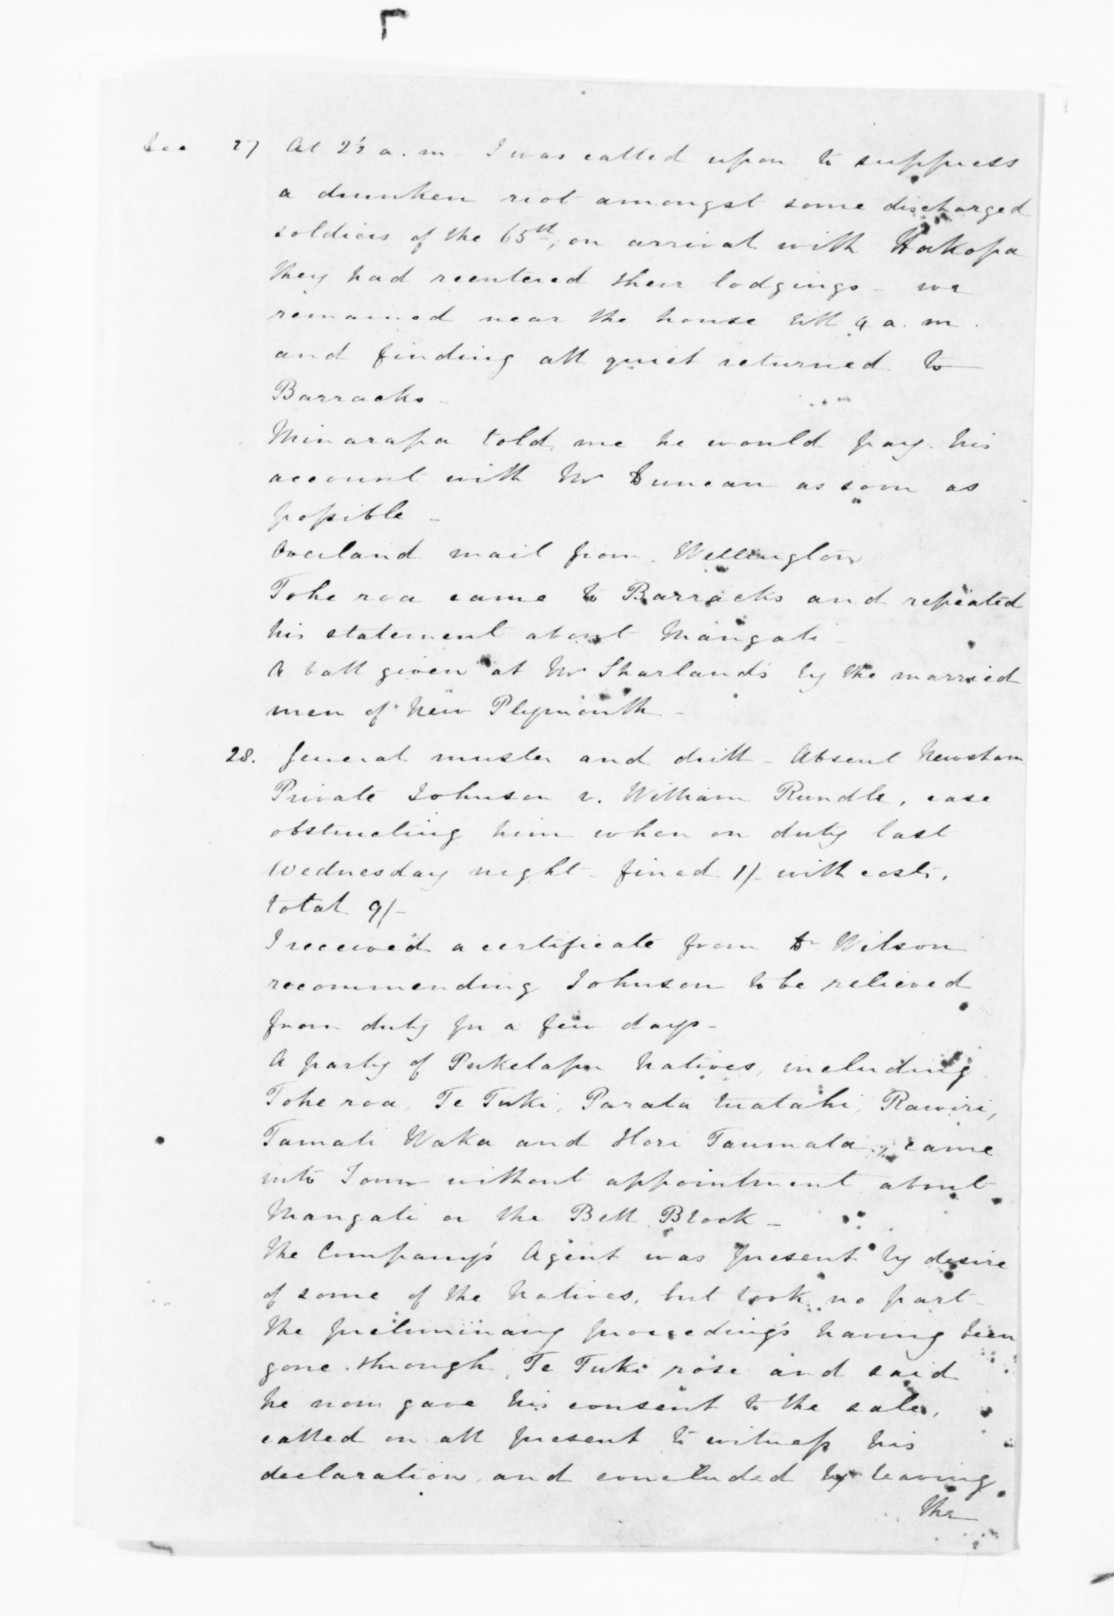 Dec 27 At 2½ a.m. I was called upon to suppress
a drunken riot amongst some discharged
soldiers of the 65th, on arrival with Hakopa
they had reentered their lodgings - we
remained near the house till 4 a.m.
and finding all quiet returned to
Barracks -
Minarapa told me he would pay his
account with Mr Duncan as soon as
possible -
Overland mail from Wellington
Tohe roa came to Barracks and repeated
his statement about Mangati -
A ball given at Mr Sharland's by the married
men of New Plymouth -
28. General muster and drill - Absent Newsham
Private Johnson v. William Rundle, case
obstructing him when on duty last
Wednesday night - fined 1/- with costs,
total 9/-
I received a certificate from Dr Wilson
recommending Johnson to be relieved
from duty for a few days -
A party of Puketapu Natives, including
Tohe roa, Te Tuki, Parata tuatahi, Rawiri,
Tamati Waka and Hori Taumata, came
into Town without appointment about
Mangati or the Bell Block -
The Company's Agent was present by desire
of some of the Natives, but took no part -
The preliminary proceedings having been
gone through, Te Tuki rose and said
he now gave his consent to the sale,
called on all present to witness his
declaration and concluded by leaving
the